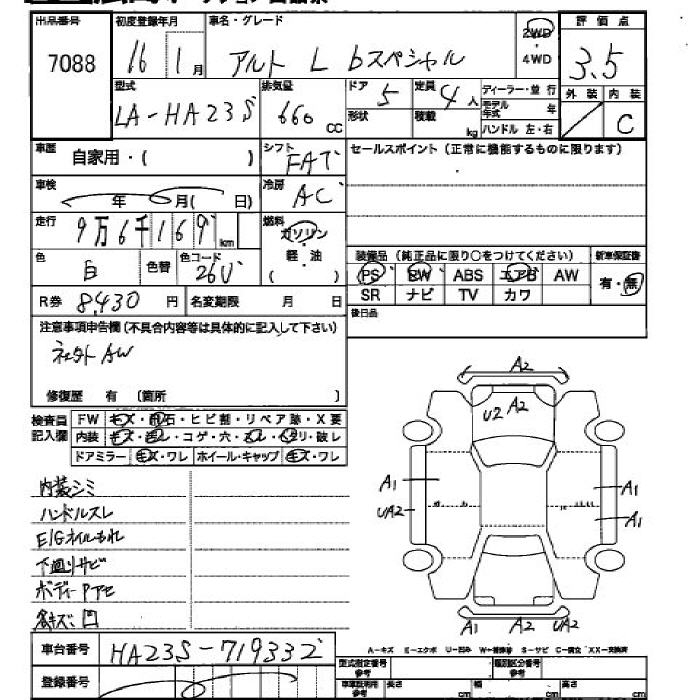 出品番号 初度登録年月 車名・グレード 2WD 評価点
7088 16 1月 アルト L bスペシャル 4WD 3.5
型式 排気量 ドア 定員 ディーラー・並行 外装 内装
LA-HA23S 660cc 5 4人 モデル年式 年 C
形状 積載 kg ハンドル 左・右
車歴 自家用・( ) シフト FAT セールスポイント(正常に機能するものに限ります)
車検 年 月( 日) 冷房 AC
走行 9万6千169km 燃料 ガソリン
軽油
( )
色 白 色替 色コード 26U 装備品(純正品に限り○をつけてください) 新車保証書
PS PW ABS エアB AW 有・無
R券 8,430円 名変期限 月 日 SR ナビ TV カワ
後日品
注意事項申告欄(不具合内容等は具体的に記入して下さい)
社外AW
修復歴 有 〔箇所 〕
検査員記入欄 FW キズ・飛石・ヒビ割・リペア跡・X要
内装 キズ・・コゲ・穴・・・破レ
ドアミラー キズ・ワレ ホイール・キャップ キズ・ワレ
A2
U2 A2
A1 A1
UA2 A1
A1 A2 UA2
内装シミ
ハンドルスレ
E/Gオイルもれ
下廻りサビ
ボディーPアセ
各キズ凹
A-キズ E-エクボ U-凹み W-補修跡 S-サビ C-腐食 XX-交換済
車台番号 HA23S-719332
型式指定番号 参考 類別区分番号 参考
登録番号 車車証明用 参考 長さ cm 幅 cm 高さ cm